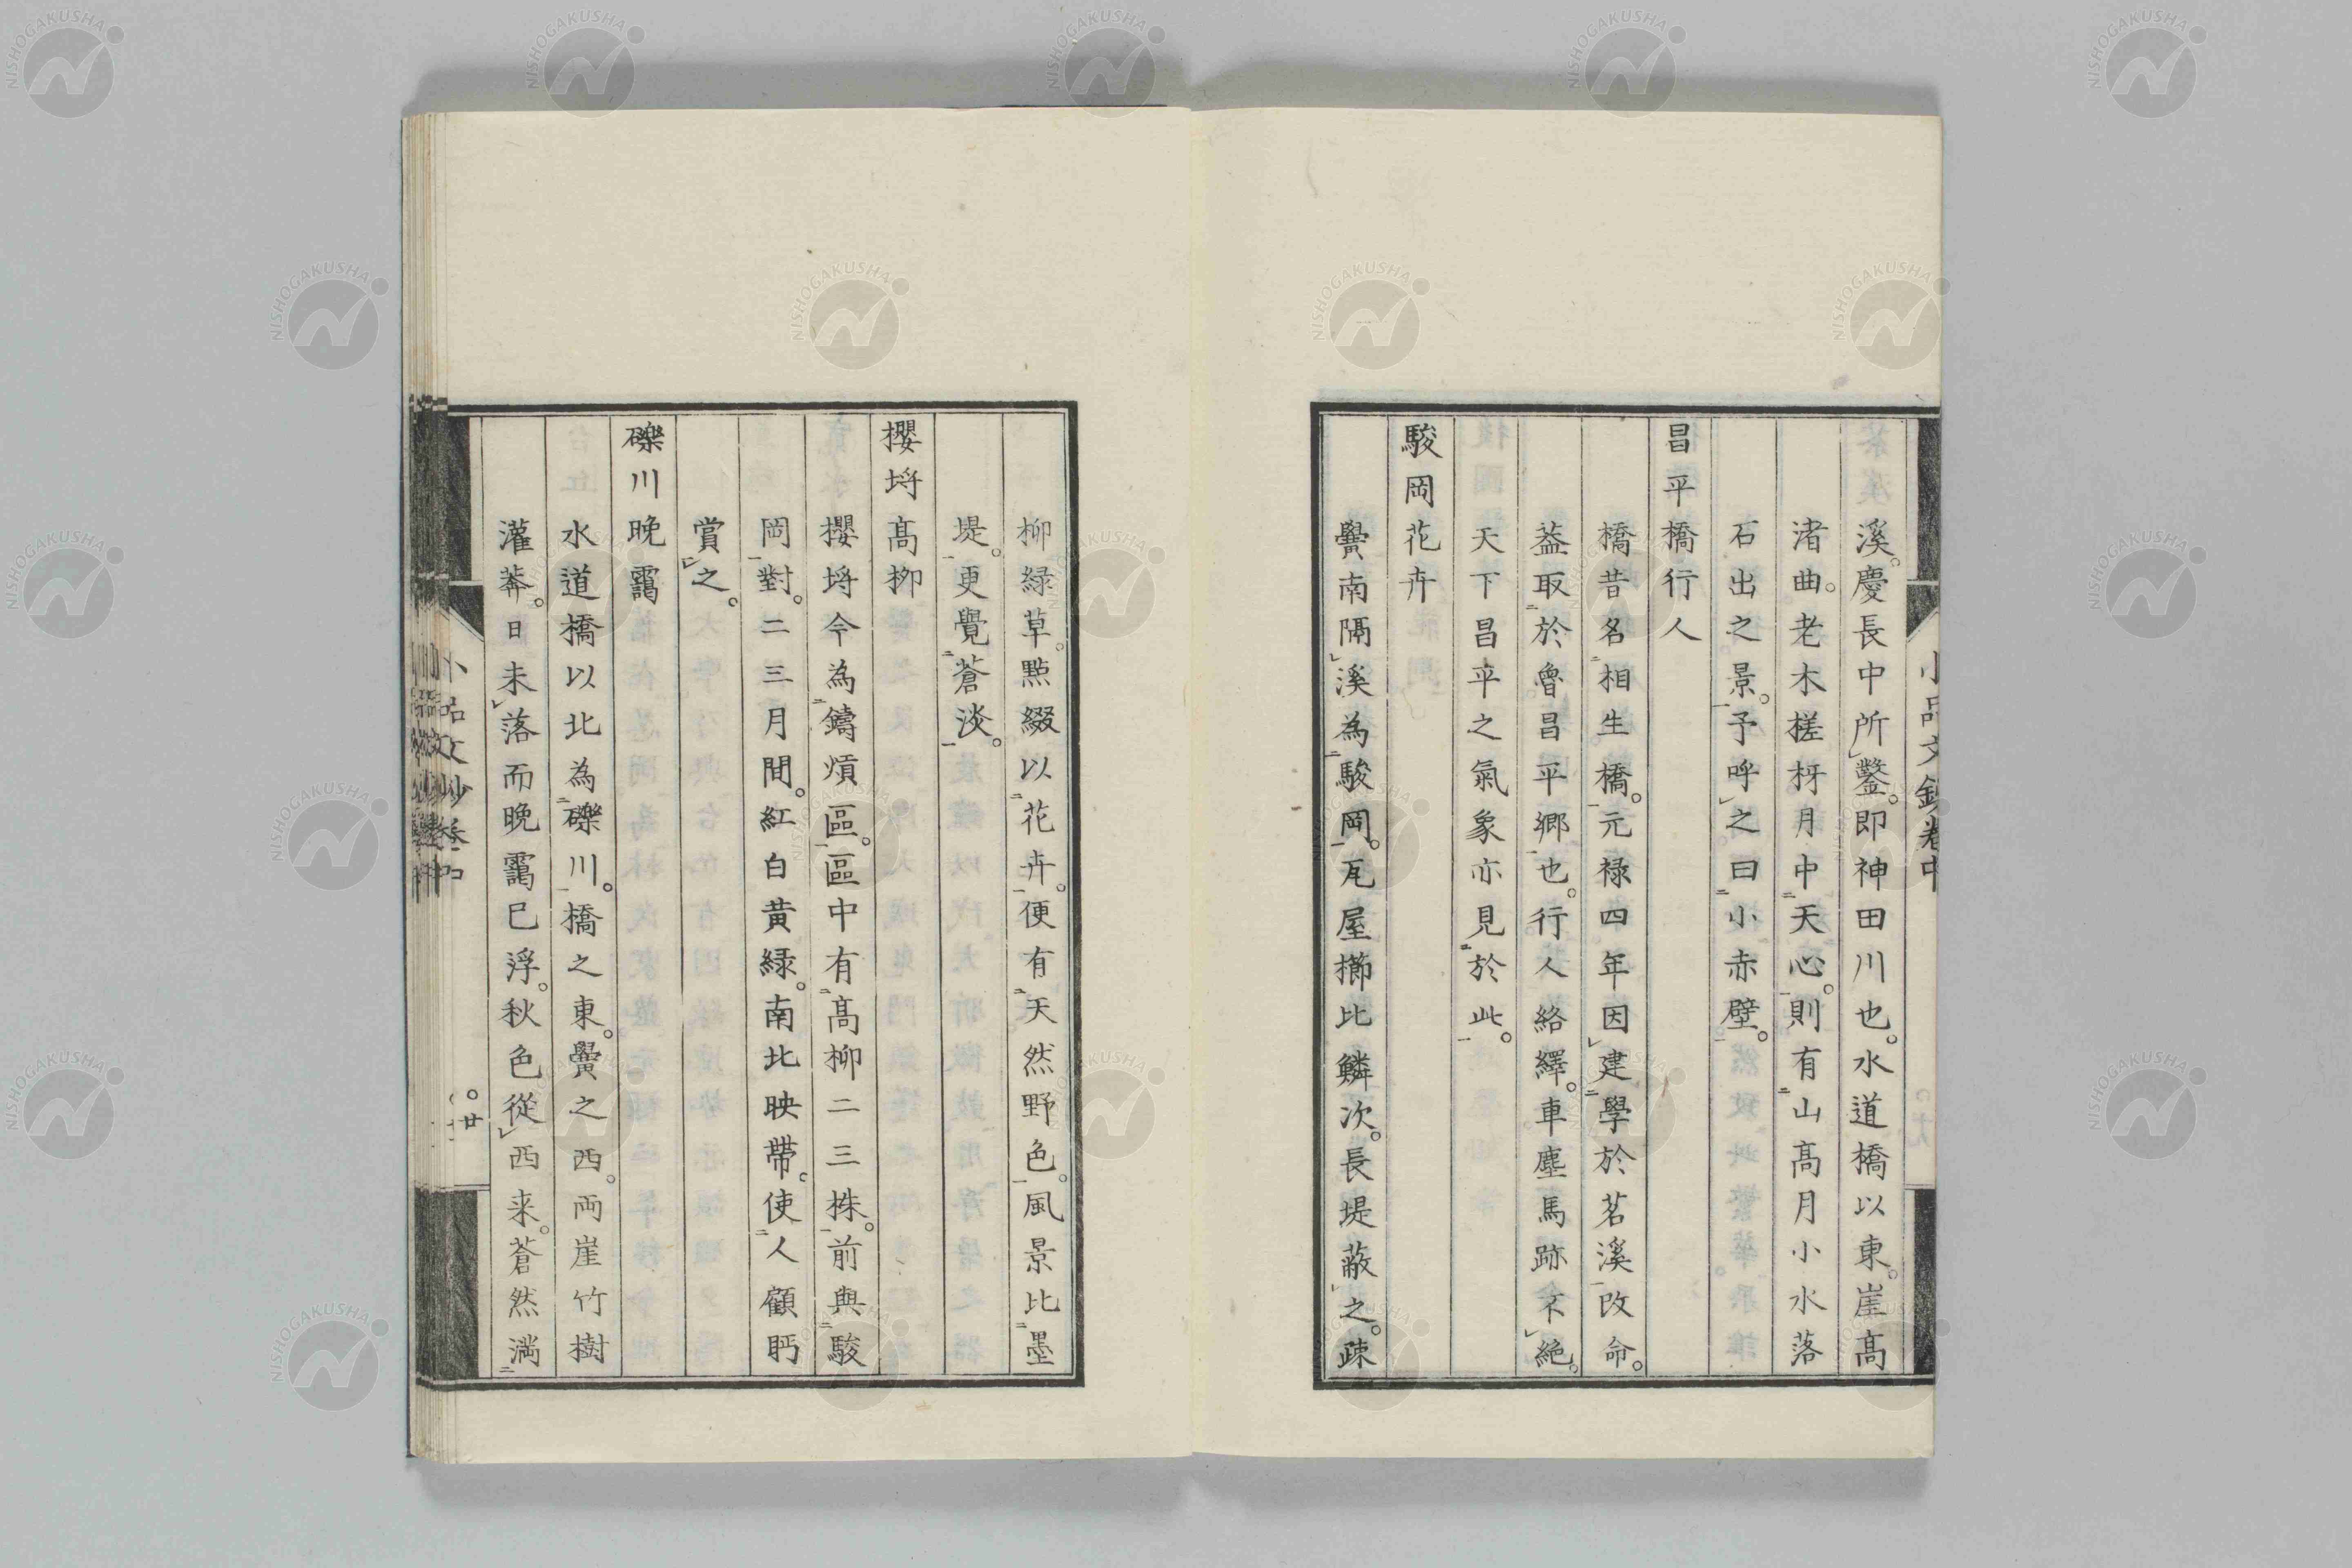 溪。慶長中所鑿。即神田川也。水道橋以東。崖高
渚曲。老木槎枒月中天心。則有山高月小水落
石出之景。予呼之曰小赤壁。
昌平橋行人
橋昔名相生橋。元禄四年因建學於茗溪改命。
葢取於魯昌平郷也。行人絡繹。車塵馬跡不絕。
天下昌平之氣象亦見於此。
駿岡花卉
黌南隔溪為駿岡。瓦屋擳比鱗次。長堤蔽之。疎
柳緑草。㸃綴以花卉。便有天然野色。風景比墨
堤。更覺蒼淡。
攖埒高柳
攖埒今為鑄煩區。區中有高柳二三株。前與駿
岡對。二三月間。紅白黃緑。南北映帶。使人顧眄
賞之。
礫川晩靄
水道橋以北為礫川。橋之東。黌之西。両崖竹樹
灌莽。日未落而晩靄已浮。秋色從西来。蒼然満
小品文鈔卷中
廿
NISHOGAKUSHA